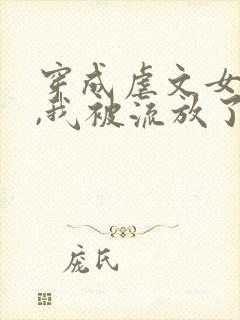 穿成虐文女
,我被流放了
庞氏